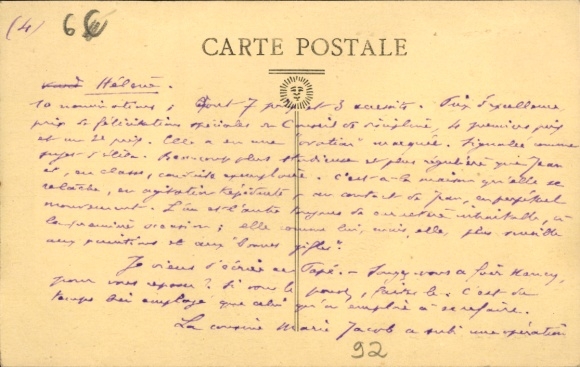 (4) 6
CARTE POSTALE
Hélène.
10 nominations ; dont 7 prix et 3 accessits. Prix d'excellence
prix de félicitations spéciales du Conseil de discipline, 4 premiers prix
et un 2e prix. Elle a eu une "ovation" marquée. Signalée comme
sujet d'élite. Beaucoup plus studieuse et plus régulière que Jean
et, en classe, conduite exemplaire. C'est à la maison qu'elle se
relâche, en agitation, au contact de Jean, en perpétuel
mouvement. L'un et l'autre toujours de à
la première occasion ; elle comme lui, mais elle, plus sensible
aux punitions et aux bonnes gifles.
Je viens d'écrire au Papé. - Songez-vous à fuir Nancy,
pour vous reposer ? Si vous le pouvez, faites-le. C'est du
temps bien employé que celui qu'on emploie à se refaire.
La cousine Marie Jacob a subi une opération
92